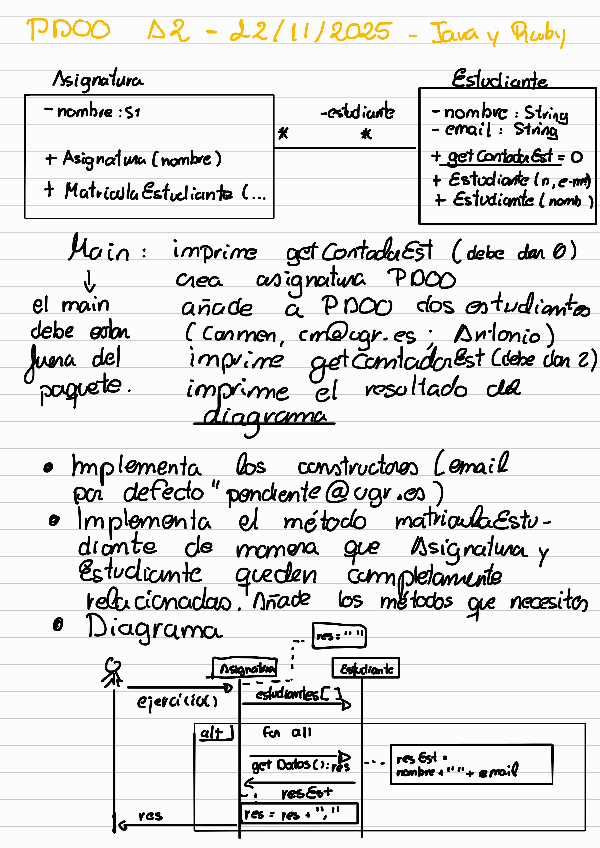 PDOO A2 - 22/11/2025 - Java y Ruby
Asignatura
- nombre : St
+ Asignatura (nombre)
+ MatriculaEstudiante (...
-estudiante
* *
Estudiante
- nombre : String
- email : String
+ getContadorEst = 0
+ Estudiante (n, e-m)
+ Estudiante (nomb)
Main : imprime getContadorEst (debe dar 0)
crea asignatura PDOO
añade a PDOO dos estudiantes
(Carmen, cm@ugr.es ; Antonio)
imprime getContadorEst (debe dar 2)
imprime el resultado del
diagrama
↓
el main
debe estar
fuera del
paquete.
• Implementa los constructores (email
por defecto "pendiente@ugr.es)
• Implementa el método matriculaEstu-
diante de manera que Asignatura y
Estudiante queden completamente
relacionadas. Añade los métodos que necesites
• Diagrama
res = " "
Asignatura
Estudiante
ejercicio()
estudiantes[]
alt
for all
getDatos() : res
resEst =
nombre + " " + email
resEst
res = res + ", "
res